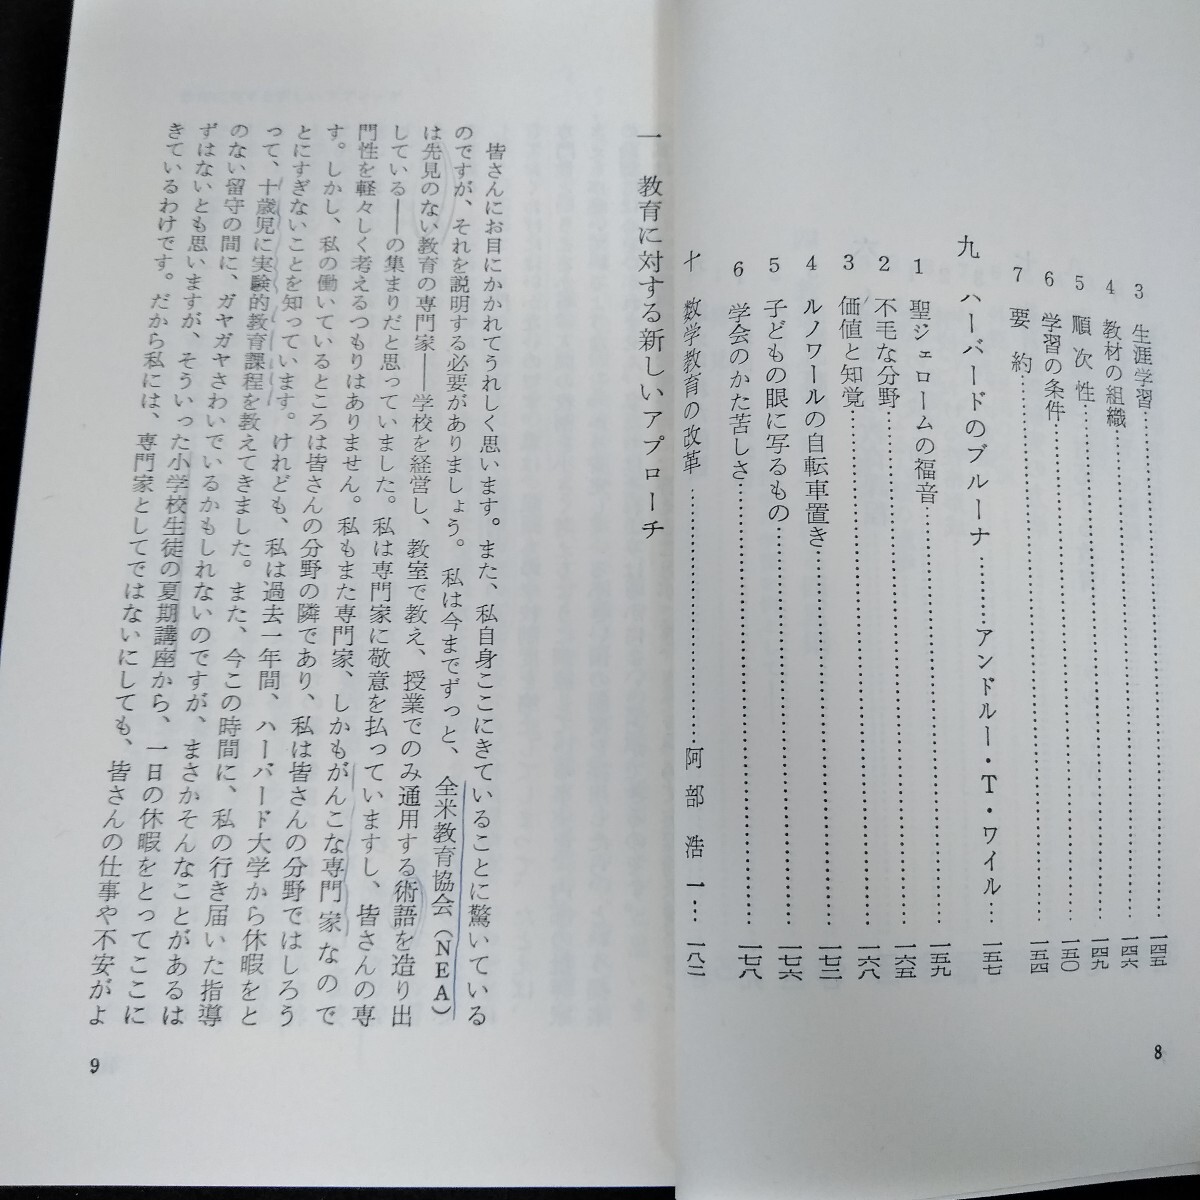 3 生涯学習……一四五
4 教材の組織……一四六
5 順次性……一四九
6 学習の条件……一五〇
7 要約……一五四
九 ハーバードのブルーナ……アンドルー・T・ワイル…一五七
1 聖ジェロームの福音……一五九
2 不毛な分野……一六五
3 価値と知覚……一六八
4 ルノワールの自転車置き……一七二
5 子どもの眼に写るもの……一七六
6 学会のかた苦しさ……一七八
十 数学教育の改革……阿部浩一…一八二
8
一 教育に対する新しいアプローチ
皆さんにお目にかかれてうれしく思います。また、私自身ここにきていることに驚いている
のですが、それを説明する必要がありましょう。私は今までずっと、全米教育協会(NEA)
は先見のない教育の専門家――学校を経営し、教室で教え、授業でのみ通用する術語を造り出
している――の集まりだと思っていました。私は専門家に敬意を払っていますし、皆さんの専
門性を軽々しく考えるつもりはありません。私もまた専門家、しかもがんこな専門家なので
す。しかし、私の働いているところは皆さんの分野の隣であり、私は皆さんの分野ではしろう
とにすぎないことを知っています。けれども、私は過去一年間、ハーバード大学から休暇をと
って、十歳児に実験的教育課程を教えてきました。また、今この時間に、私の行き届いた指導
のない留守の間に、ガヤガヤさわいでいるかもしれないのですが、まさかそんなことがあるは
ずはないとも思いますが、そういった小学校生徒の夏期講座から、一日の休暇をとってここに
きているわけです。だから私には、専門家としてではないにしても、皆さんの仕事や不安がよ
9